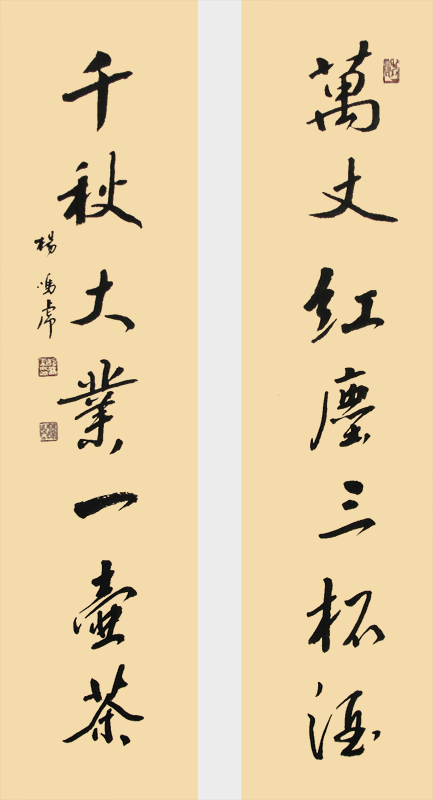 萬丈紅塵三杯酒
千秋大業一壺茶
楊鳴虎